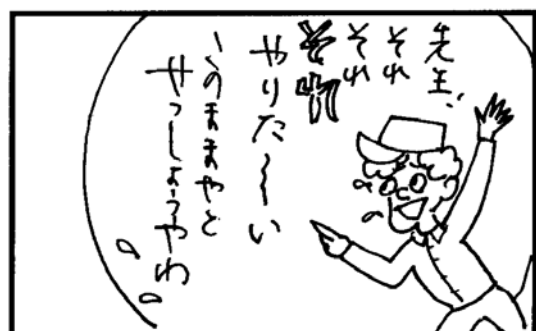 先生、
それ
それ
それ
やりた〜い
このままやと
せっしょうやわ